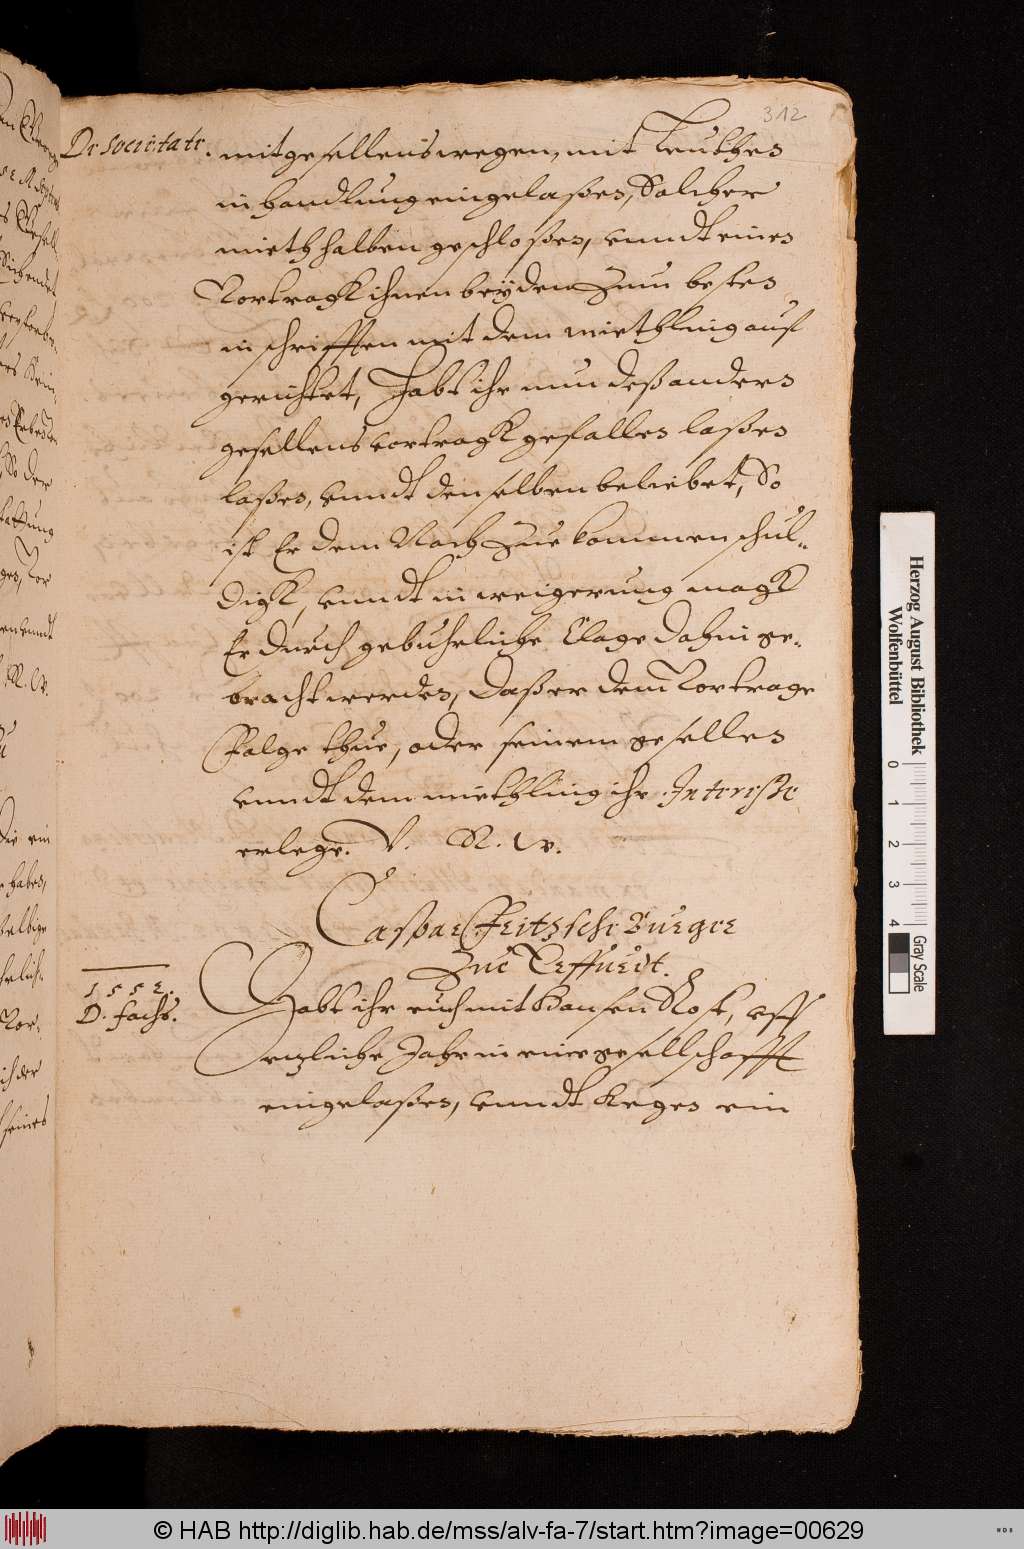 312
De Societate.
mitgesellens wegen, mit Leuthen
in handlung eingelaßen, Solcher
mieth halben geschloßen, vnndt einen
Vortragk ihnen beÿden Zum besten
in schrifften mit dem miethling auf
gerichtet, Habt ihr nun deß andern
gesellens vortragk gefallen laßen
laßen, vnndt denselben beliebet, So
ist Er dem Nach Zue kommen schul-
digk, vnndt in weigerung magk
Er durch gebuhrliche Clage dahin ge-
bracht werden, Daß er dem Vortrage
Folge thue, oder seinem gesellen
vnndt dem miethling ihr Interesse
erlege. V. R. W.
Caspar Fritzsche Burger
Zue Erffurdt.
1552.
D. Fachs.
Habt ihr euch mit Hansen Rost, vff
etzliche Jahr in eine geselschafft
eingelaßen, vnndt kegen ein
Herzog August Bibliothek
Wolfenbüttel
0 1 2 3 4
Gray Scale
© HAB http://diglib.hab.de/mss/alv-fa-7/start.htm?image=00629